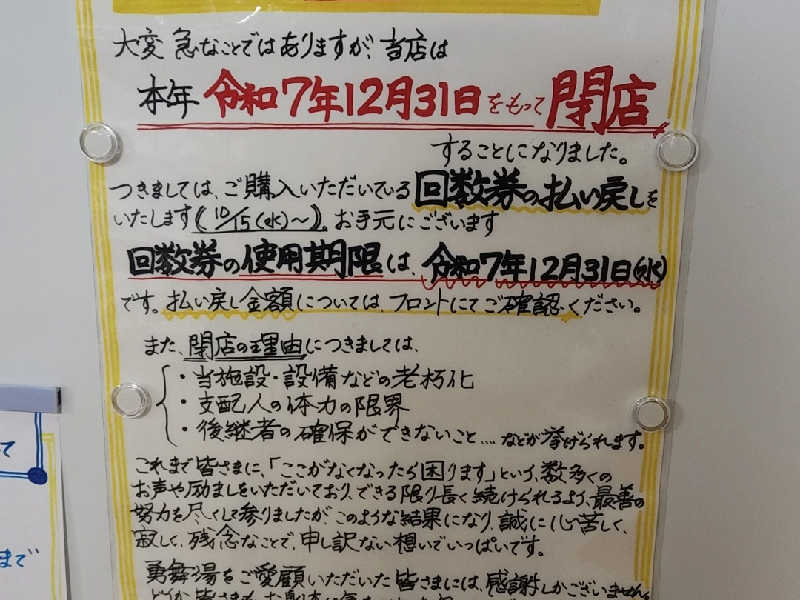 大変急なことではありますが、当店は
本年 令和7年12月31日をもって 閉店
することになりました。
つきましては、ご購入いただいている回数券の払い戻しを
いたします(10/15(水)～)。お手元にございます
回数券の使用期限は、令和7年12月31日(水)
です。払い戻し金額については、フロントにてご確認ください。
また、閉店の理由につきましては、
・当施設・設備などの老朽化
・支配人の体力の限界
・後継者の確保ができないこと....などが挙げられます。
これまで皆さまに、「ここがなくなったら困ります」という、数多くの
お声や励ましをいただいており、できる限り長く続けられるよう、最善の
努力を尽くして参りましたが、このような結果になり、誠に心苦しく、
寂しく、残念なことで、申し訳ない想いでいっぱいです。
勇舞湯をご愛顧いただいた皆さまには、感謝しかございません。
て
まで